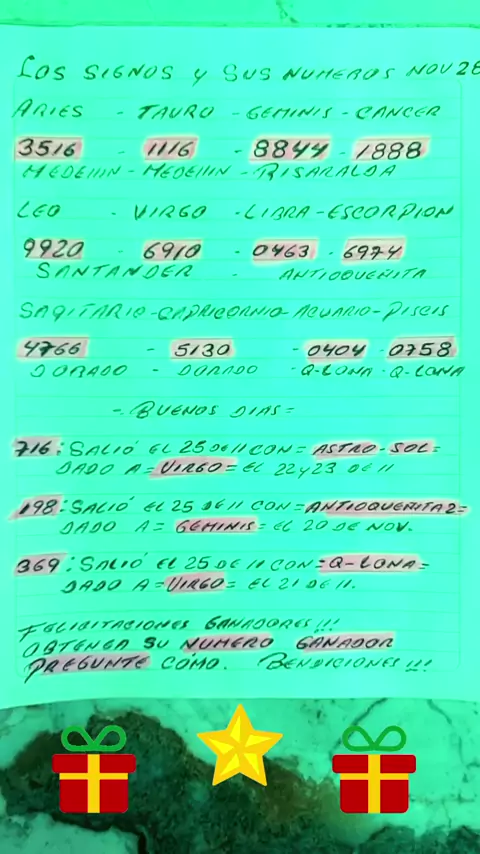 LOS SIGNOS Y SUS NUMEROS NOV 26
ARIES - TAURO - GEMINIS - CANCER
3516 - 1116 - 8844 - 1888
MEDELLIN - MEDELLIN - RISARALDA
LEO - VIRGO - LIBRA - ESCORPION
9920 - 6910 - 0463 - 6974
SANTANDER - ANTIOQUEÑITA
SAGITARIO - CAPRICORNIO - ACUARIO - PISCIS
4766 - 5130 - 0404 - 0758
DORADO - DORADO - Q-LONA - Q-LONA
- BUENOS DIAS =
716: SALIÓ EL 25 DE 11 CON = ASTRO-SOL =
DADO A = VIRGO = EL 22 y 23 DE 11
198: SALIÓ EL 25 DE 11 CON = ANTIOQUEÑITA 2 =
DADO A = GEMINIS = EL 20 DE NOV.
369: SALIÓ EL 25 DE 11 CON = Q-LONA =
DADO A = VIRGO = EL 21 DE 11.
FELICITACIONES GANADORES!!!
OBTENGA SU NUMERO GANADOR
PREGUNTE CÓMO. BENDICIONES!!!